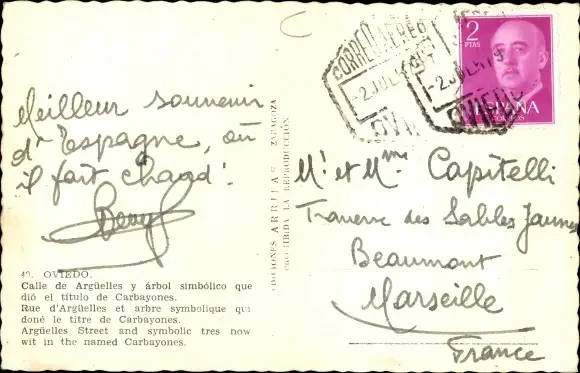 Meilleur souvenir
d'Espagne, où
il fait chaud !
49. OVIEDO.
Calle de Argüelles y árbol simbólico que
dió el título de Carbayones.
Rue d'Argüelles et arbre symbolique qui
doné le titre de Carbayones.
Argüelles Street and symbolic tres now
wit in the named Carbayones.
EDICIONES ARRIBAS ZARAGOZA
PROHIBIDA LA REPRODUCCIÓN
CORREO AEREO
2 JUL
OVIEDO
2
PTAS
ESPAÑA
CORREOS
Mr et Mme Capitelli
Traverse des Sables Jaunes
Beaumont
Marseille
France